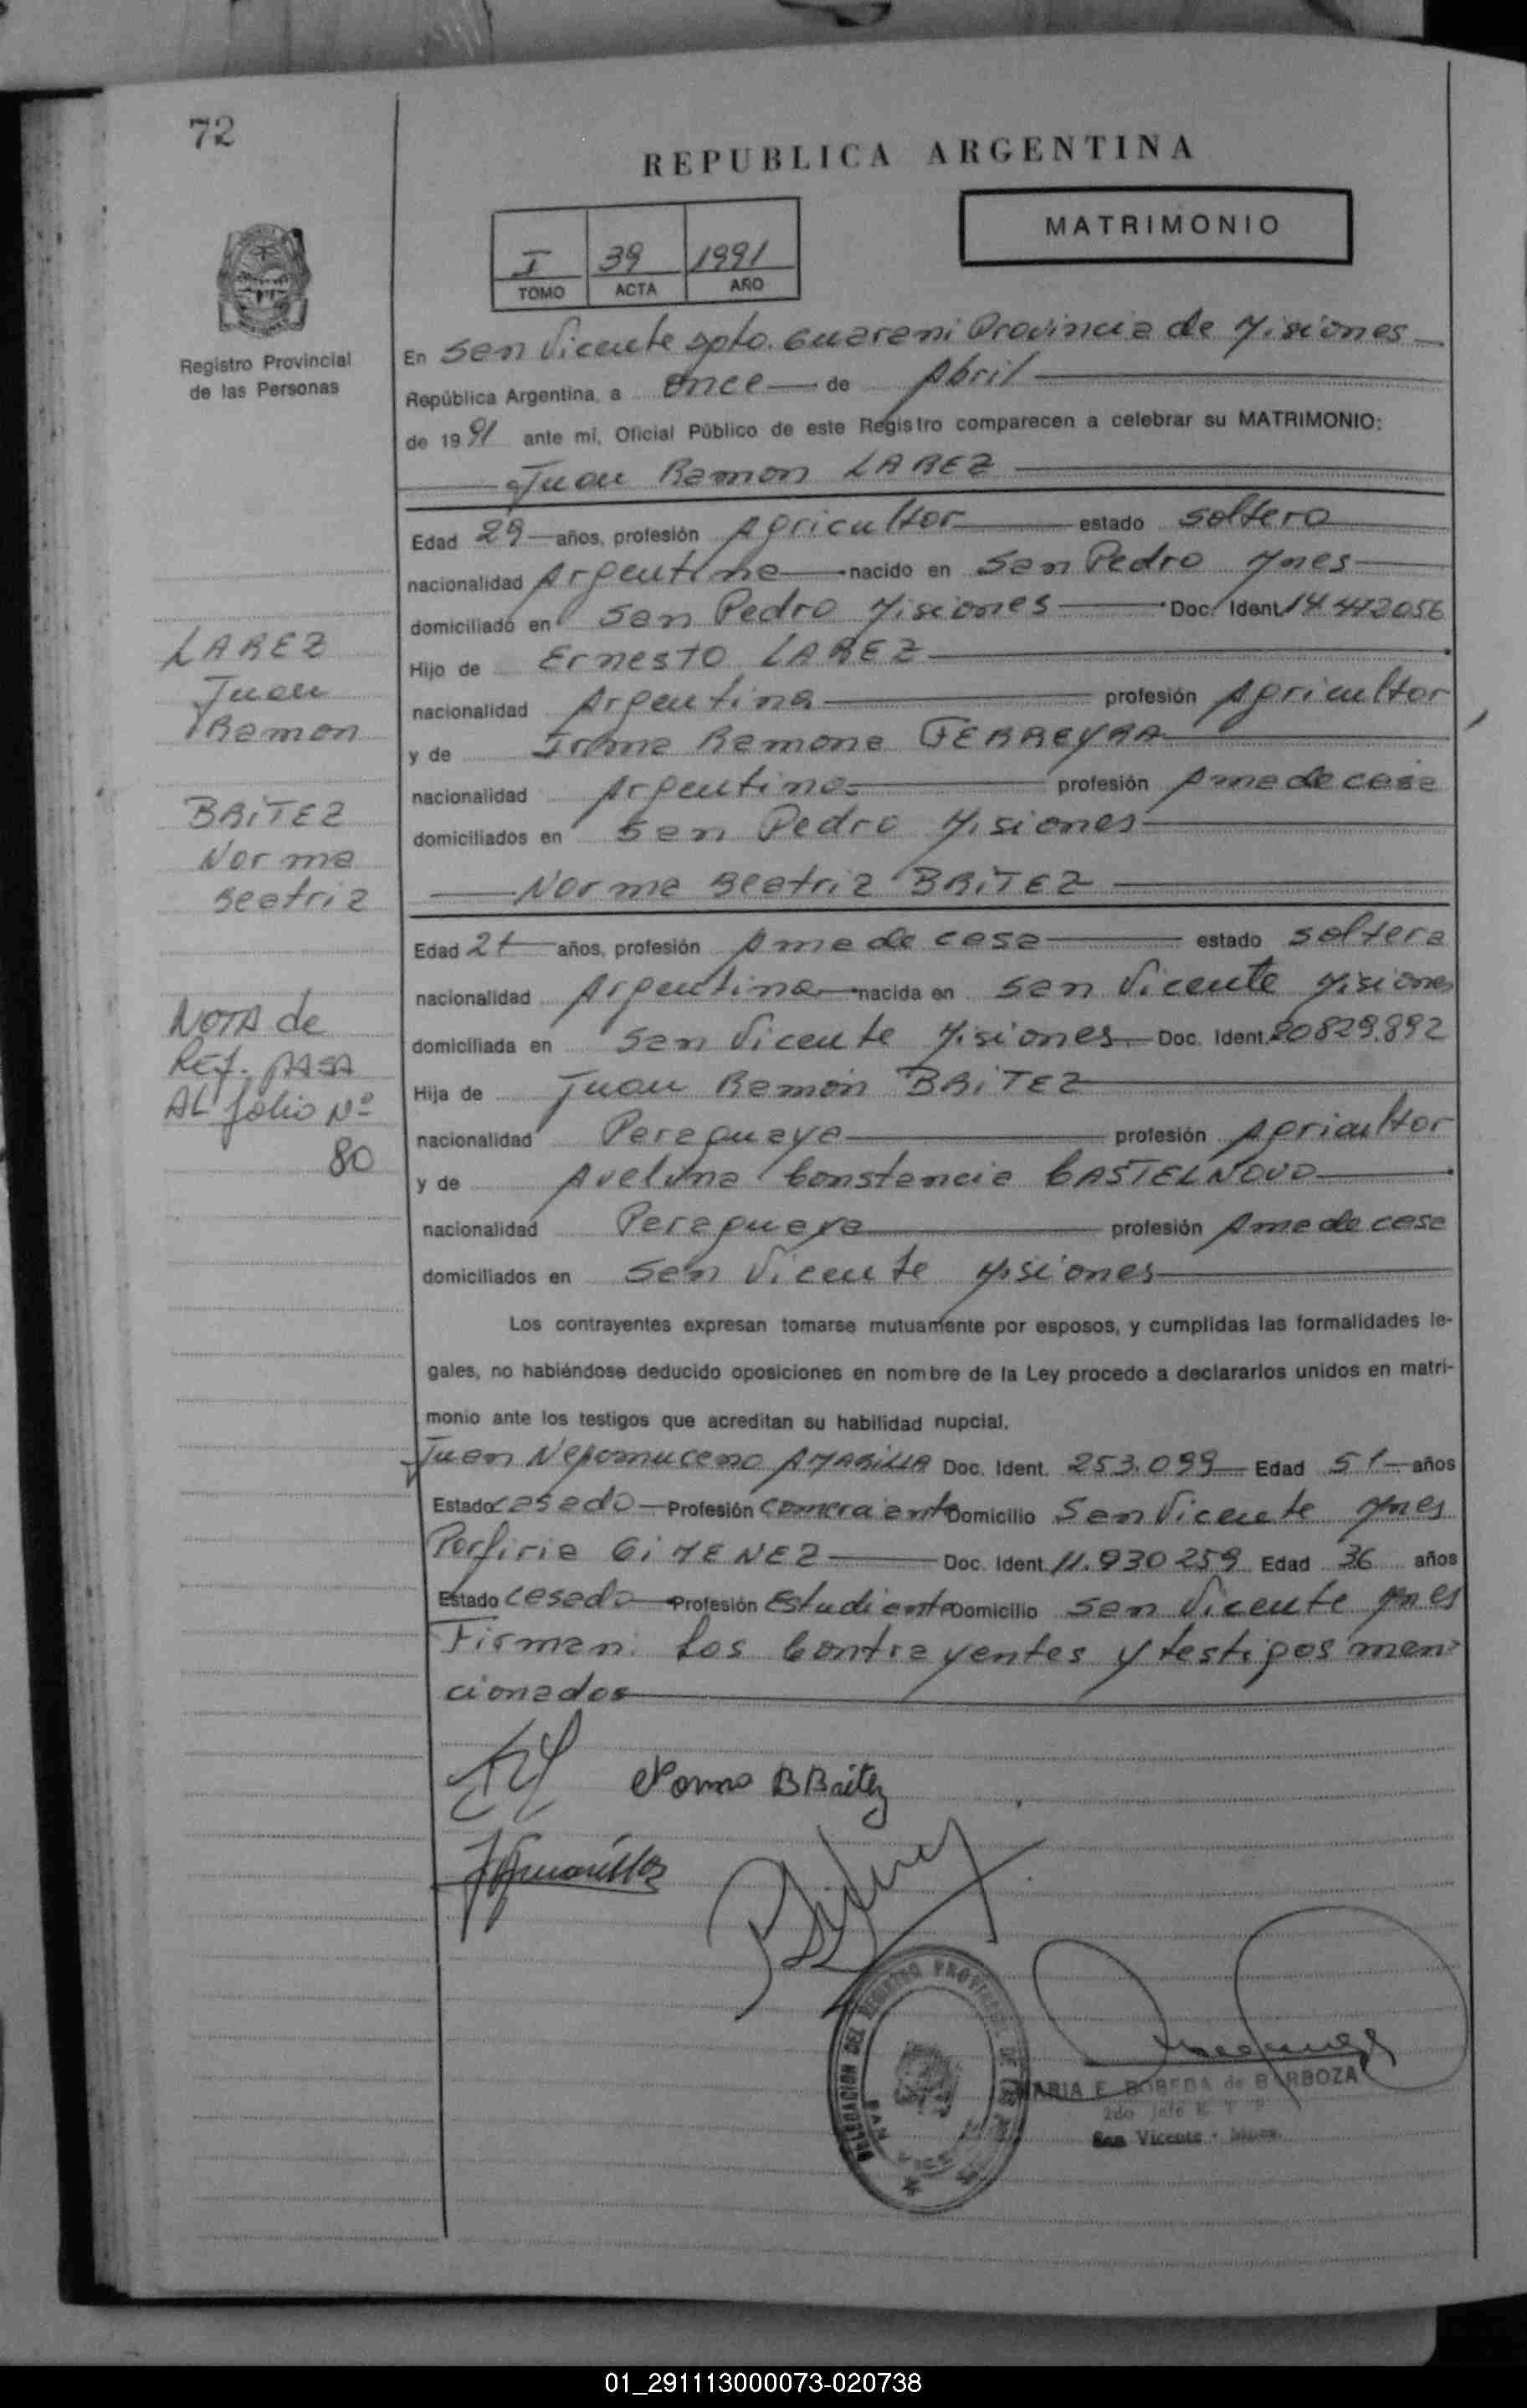 72
REPUBLICA ARGENTINA
MATRIMONIO
I 39 1991
TOMO ACTA AÑO
Registro Provincial
de las Personas
En San Vicente Dpto. Guarani Provincia de Misiones
República Argentina, a once de Abril
de 1991 ante mí, Oficial Público de este Registro comparecen a celebrar su MATRIMONIO:
Juan Ramon LAREZ
Edad 29 años, profesión Agricultor estado soltero
nacionalidad Argentina nacido en San Pedro Mnes
domiciliado en San Pedro Misiones Doc. Ident. 14.442056
Hijo de Ernesto LAREZ
nacionalidad Argentina profesión Agricultor
y de Irma Ramona FERREYRA
nacionalidad Argentina profesión Ama de casa
domiciliados en San Pedro Misiones
Norma Beatriz BRITEZ
Edad 21 años, profesión Ama de casa estado soltera
nacionalidad Argentina nacida en San Vicente Misiones
domiciliada en San Vicente Misiones Doc. Ident. 20829.892
Hija de Juan Ramon BRITEZ
nacionalidad Paraguaya profesión Agricultor
y de Avelina Constancia CASTELNOVO
nacionalidad Paraguaya profesión Ama de casa
domiciliados en San Vicente Misiones
Los contrayentes expresan tomarse mutuamente por esposos, y cumplidas las formalidades le-
gales, no habiéndose deducido oposiciones en nombre de la Ley procedo a declararlos unidos en matri-
monio ante los testigos que acreditan su habilidad nupcial.
Juan Nepomuceno AMARILLA Doc. Ident. 253.099 Edad 51 años
Estado casado Profesión comerciante Domicilio San Vicente Mnes
Porfiria GIMENEZ Doc. Ident. 11.930259 Edad 36 años
Estado casada Profesión Estudiante Domicilio San Vicente Mnes
Firman: Los Contrayentes y testigos men-
cionados
LAREZ
Juan
Ramon
BRITEZ
Norma
Beatriz
NOTA de
REF. PASA
AL folio Nº
80
Norma B Britez
JAmarilla
DELEGACION DEL REGISTRO PROVINCIAL DE LAS
SAN VICE
MARIA E. BOBEDA de BARBOZA
2do Jefe R. P.
San Vicente - Mnes.
01_291113000073-020738